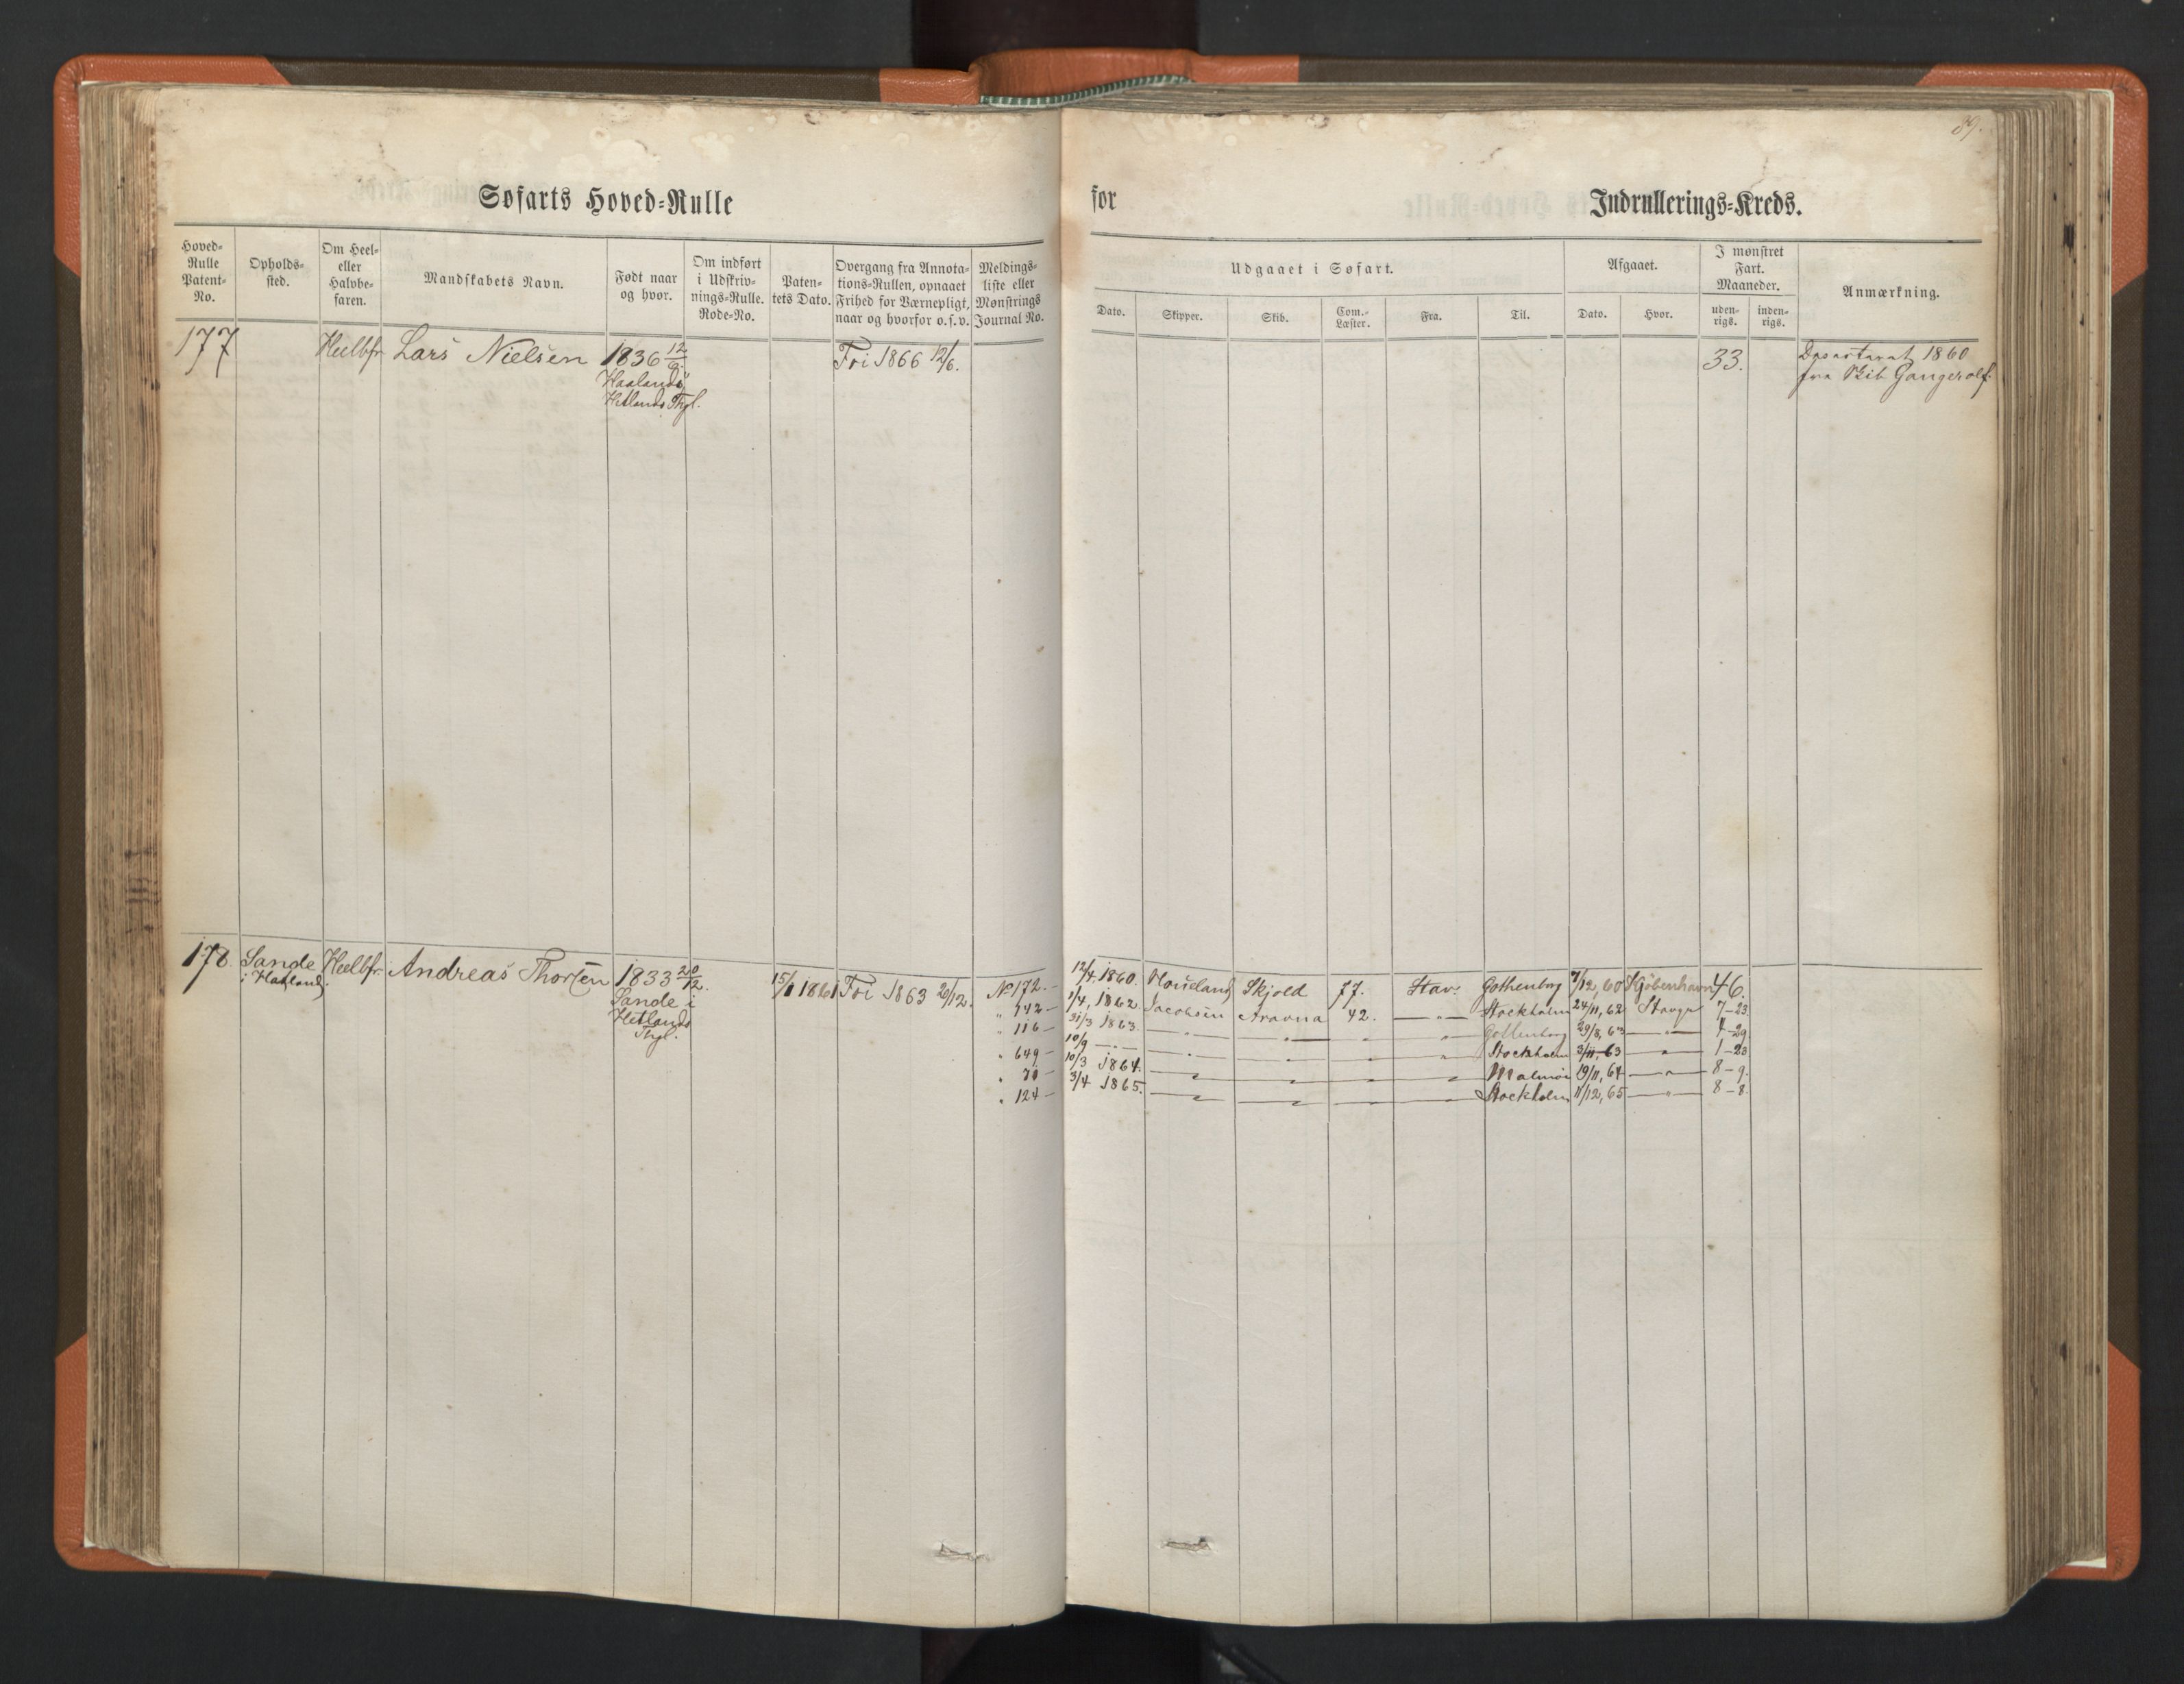 89.
Søfarts Hoved-Rulle for Indrullerings-Kreds.
Hoved-Rulle Patent-No.
Opholds-sted.
Om Heel- eller Halvbe-faren.
Mandskabets Navn.
Født naar og hvor.
Om indført i Udskriv-nings-Rulle. Rode-No.
Paten-tets Dato.
Overgang fra Annota-tions-Rullen, opnaaet Frihed for Værnepligt, naar og hvorfor o.s.v.
Meldings-liste eller Mønstrings Journal No.
Udgaaet i Søfart.
Dato. Skipper. Skib. Com.-Læster. Fra. Til.
Afgaaet.
Dato. Hvor.
I mønstret Fart. Maaneder.
uden-rigs. inden-rigs.
Anmærkning.
177 Heelbfr. Lars Nielsen 1836 12/6. Fri 1866 12/6. 33. 1860
Haalands fra Skib Gangerolf.
Hetlands Thgl.
178. Sande Heelbfr. Andreas Thorsen 1833 20/12. 15/1 1861 Fri 1863 20/12. No 172. - 12/4 1860. Skjold 77. Stav. Gothenborg 7/12, 60 Kjöbenhavn 46.
i Haaland. Sande i " 142 - 1/4, 1862 Jacobsen 42. - " - Stockholm 24/11, 62 Stavgr 7-23.
Hetlands " 116 - 31/3 1863. - " - - " - " " Gothenborg 29/8, 63 - " - 4-29.
Thgl. " 649 - 10/9 - " - - " - - " - " " Stockholm 3/11, 63 - " - 1-23
" 70 - 10/3 1864. - " - - " - " " Malmö 19/11, 64 - " - 8-9.
" 124 - 3/4 1865. - " - - " - " " Stockholm 11/12, 65 - " - 8-8.